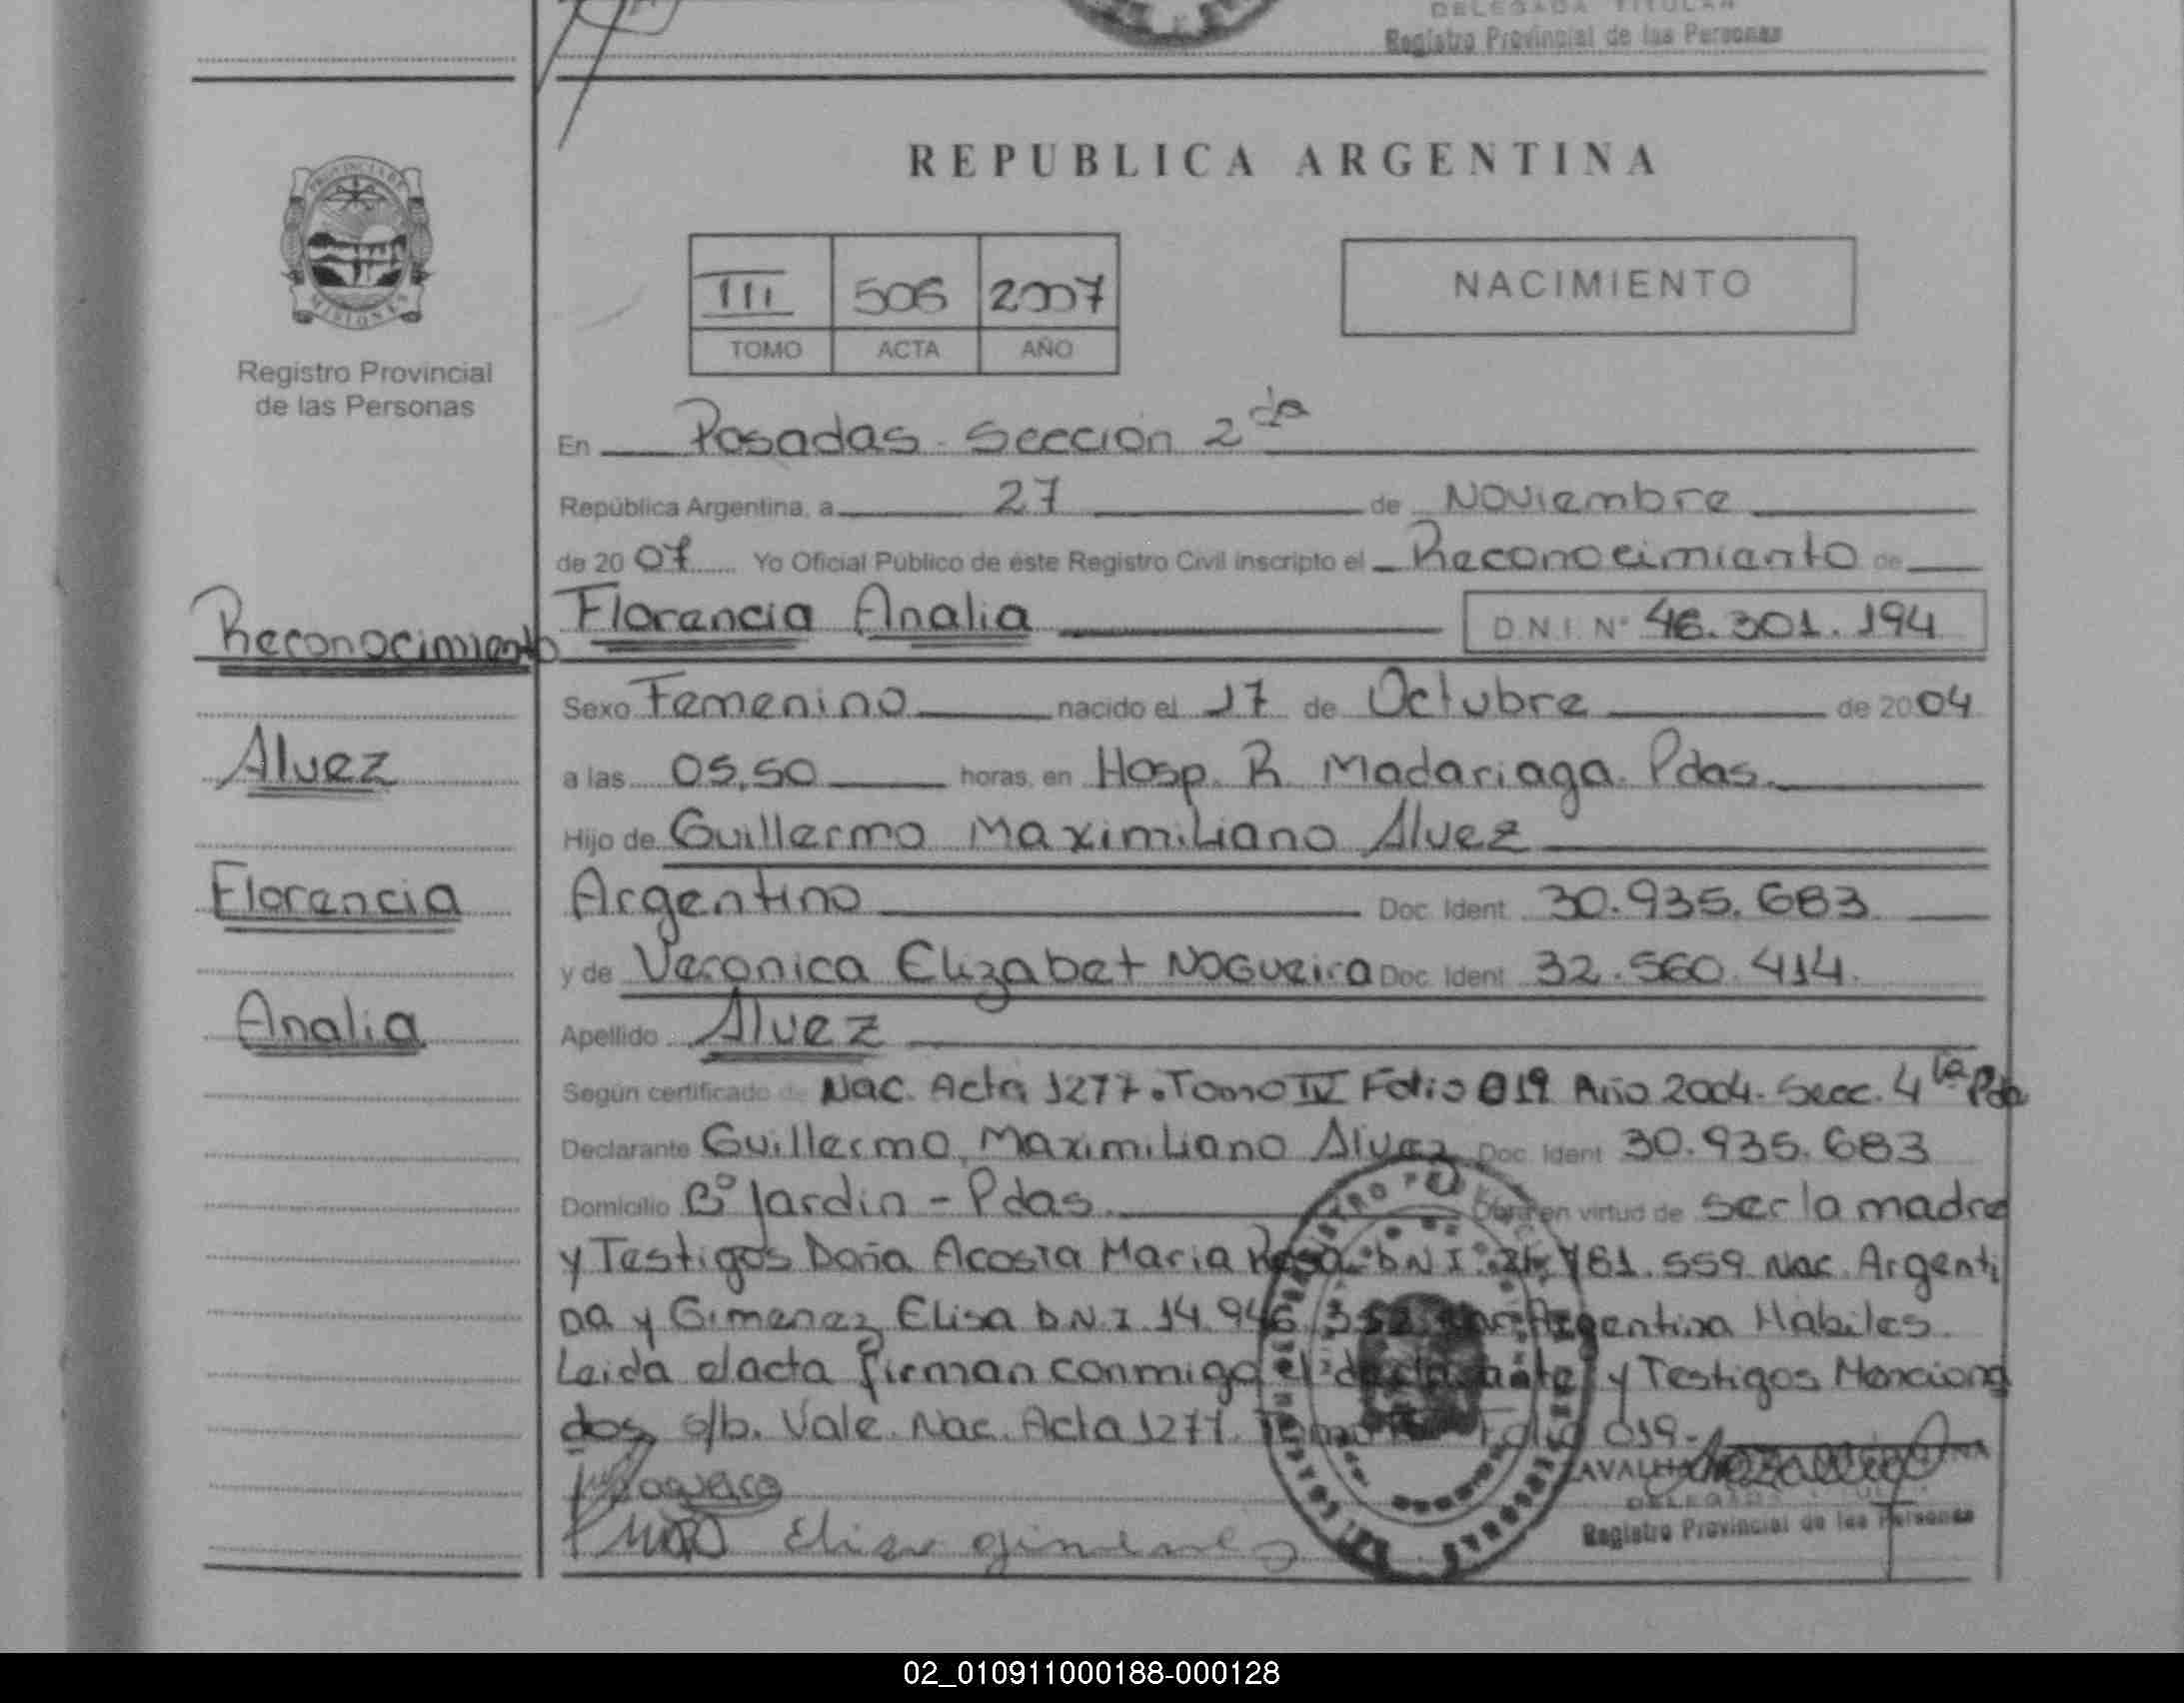 DELEGADA TITULAR
Registro Provincial de las Personas
PROVINCIA DE
MISIONES
Registro Provincial
de las Personas
REPUBLICA ARGENTINA
III 506 2007
TOMO ACTA AÑO
NACIMIENTO
En Posadas - Sección 2da
República Argentina, a 27 de Noviembre
de 20 07 Yo Oficial Público de éste Registro Civil inscripto el Reconocimianto de
Reconocimiento
Florencia Analia D.N.I. N° 46.301.194
Sexo Femenino nacido el 17 de Octubre de 2004
Alvez
a las 05,50 horas, en Hosp. R. Madariaga. Pdas.
Hijo de Guillermo Maximiliano Alvez
Florencia
Argentino Doc. Ident. 30.935.683
y de Veronica Elizabet Nogueira Doc. Ident. 32.560.414.
Analia
Apellido Alvez
Según certificado de Nac. Acta 1277. Tomo IV Folio 019 Año 2004. Secc. 4ta Pda
Declarante Guillermo Maximiliano Alvez Doc. Ident. 30.935.683
Domicilio B° Jardin - Pdas. Obra en virtud de ser la madre
y Testigos Doña Acosta Maria Rosa D.N.I. 781.559 Nac. Argenti
na y Gimenez Elisa D.N.I. 14.946 Argentina Habiles.
Leida el acta firman conmigo el declarante y Testigos Menciona
dos, s/b. Vale. Nac. Acta 1277. Tomo Folio 019.-
Nogueira
Elisa gimenez
Registro Provincial de las Personas
02_010911000188-000128